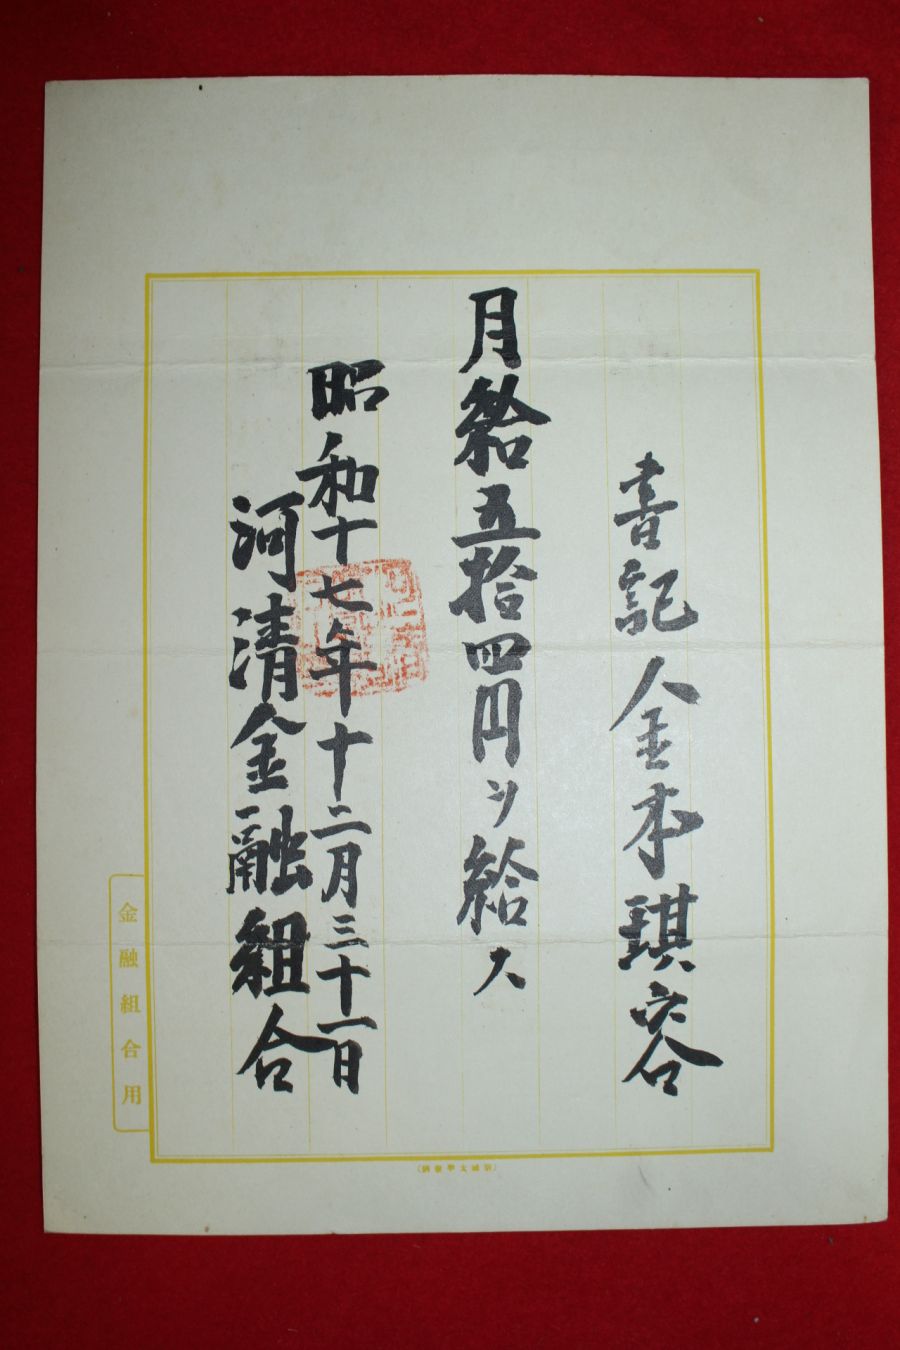 書記 金本琪容
月給五拾四円ヲ給ス
昭和十七年十二月三十一日
河清金融組合
金融組合用